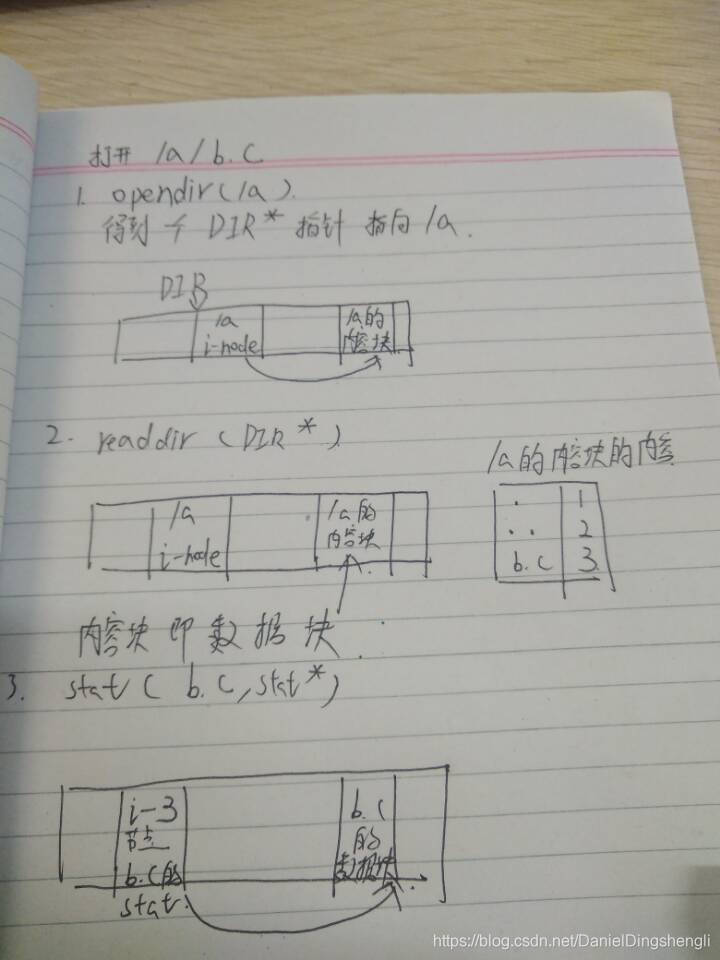 打开 /a/b.c
1. opendir(/a).
得到个 DIR* 指针 指向 /a.
DIR
/a
i-node
/a的
内容块
2. readdir (DIR*)
/a的内容块的内容
/a
i-node
/a的
内容块
. 1
.. 2
b.c 3
内容块 即 数据块.
3. stat( b.c, stat*)
i-3
节点
b.c的
stat
b.c
的
数据块
https://blog.csdn.net/DanielDingshengli